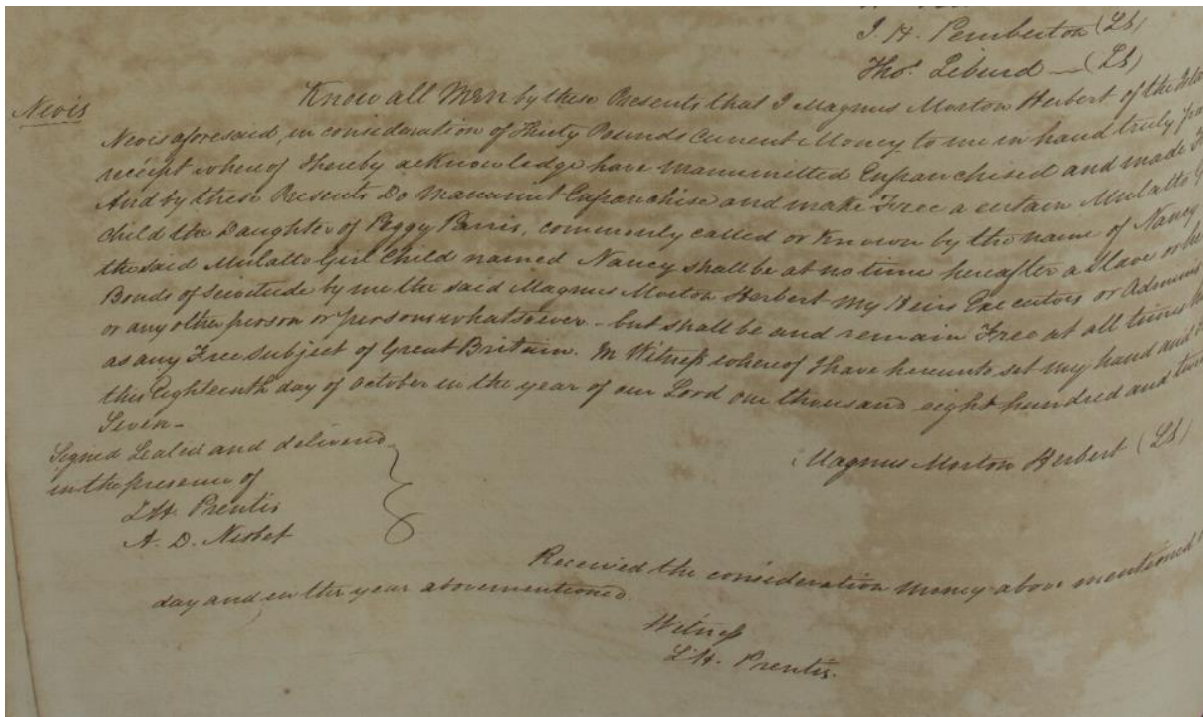 J. H. Pemberton (LS)
Thos. Liburd — (LS)
Nevis
Know all Men by these Presents that I Magnus Morton Herbert of the
Nevis aforesaid, in consideration of Thirty Pounds Current Money to me in hand truly
receipt whereof I hereby acknowledge have manumitted Enfranchised and made
And by these Presents Do Manumit Enfranchise and make Free a certain Mulatto
Child the Daughter of Peggy Parris, commonly called or known by the name of Nancy
the said Mulatto Girl Child named Nancy shall be at no time hereafter a Slave or
Bonds of Servitude by me the said Magnus Morton Herbert my Heirs Executors or
or any other person or persons whatsoever - but shall be and remain Free at all times
as any Free subject of Great Britain. In Witness whereof I have hereunto set my hand and
this Eighteenth day of October in the year of our Lord one thousand eight hundred and
Seven -
Signed Sealed and delivered
in the presence of
A. D. Nisbet
Magnus Morton Herbert (LS)
Received the consideration money above mentioned
day and in the year abovementioned
Witness
Prentis.